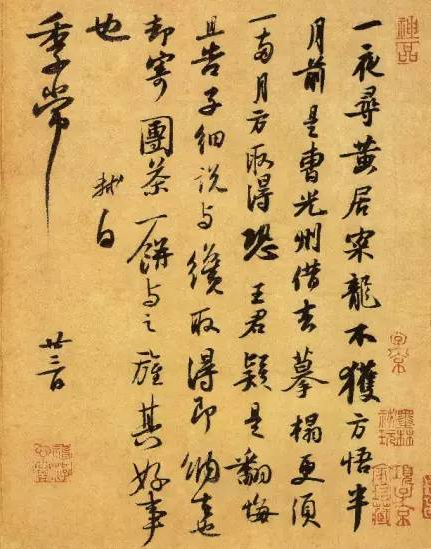 一夜尋黄居寀龍不獲方悟半
月前是曹光州借去摹搨更須
一兩月方取得恐王君疑是翻悔
且告子細說與纔取得即納去也
却寄團茶一餅與之旌其好事
也 軾白
季常 廿三日
神品
墨林祕玩
項子京家珍藏